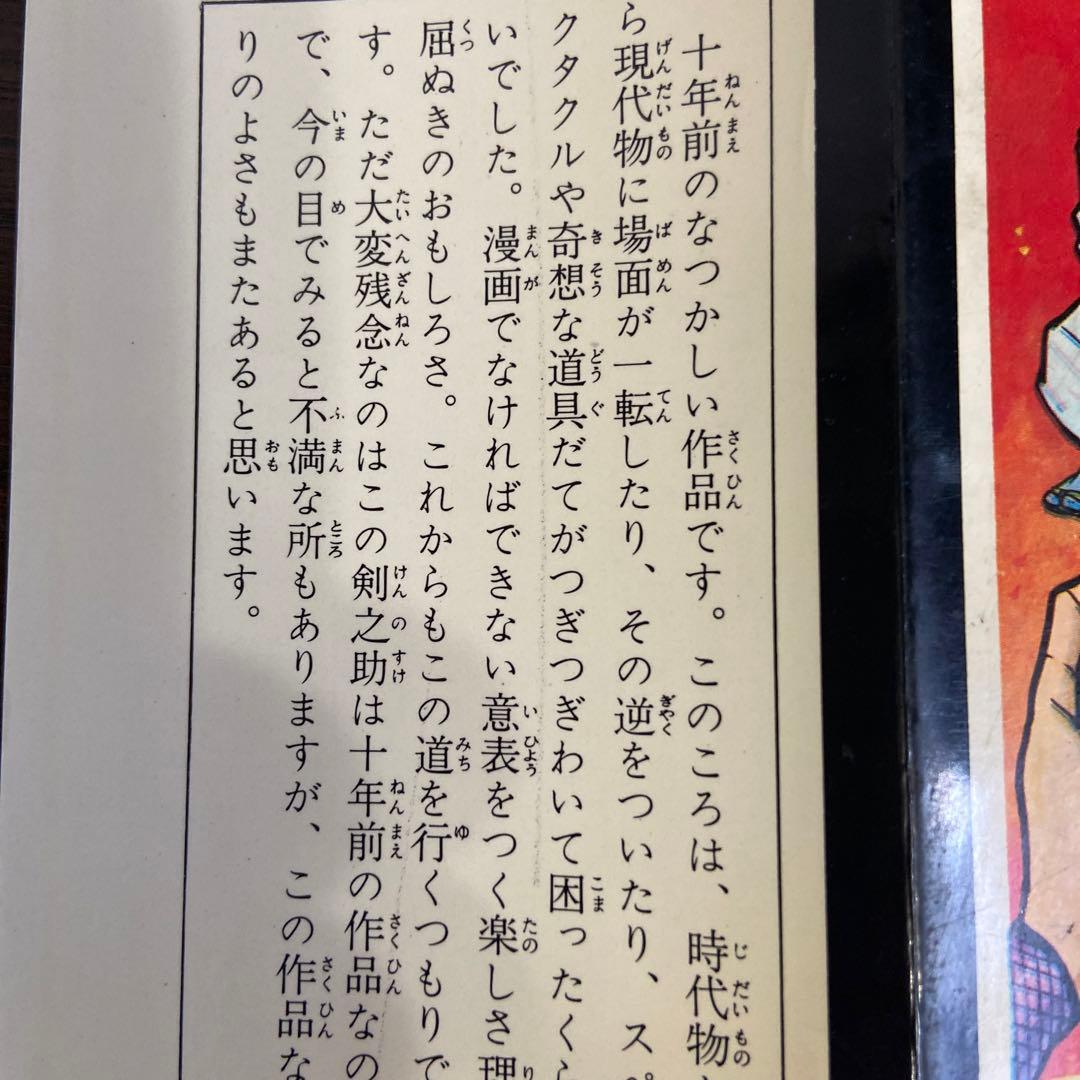 十年前のなつかしい作品です。このころは、時代物か
ら現代物に場面が一転したり、その逆をついたり、スペ
クタクルや奇想な道具だてがつぎつぎわいて困ったくら
いでした。漫画でなければできない意表をつく楽しさ理
屈ぬきのおもしろさ。これからもこの道を行くつもりで
す。ただ大変残念なのはこの剣之助は十年前の作品なの
で、今の目でみると不満な所もありますが、この作品な
りのよさもまたあると思います。